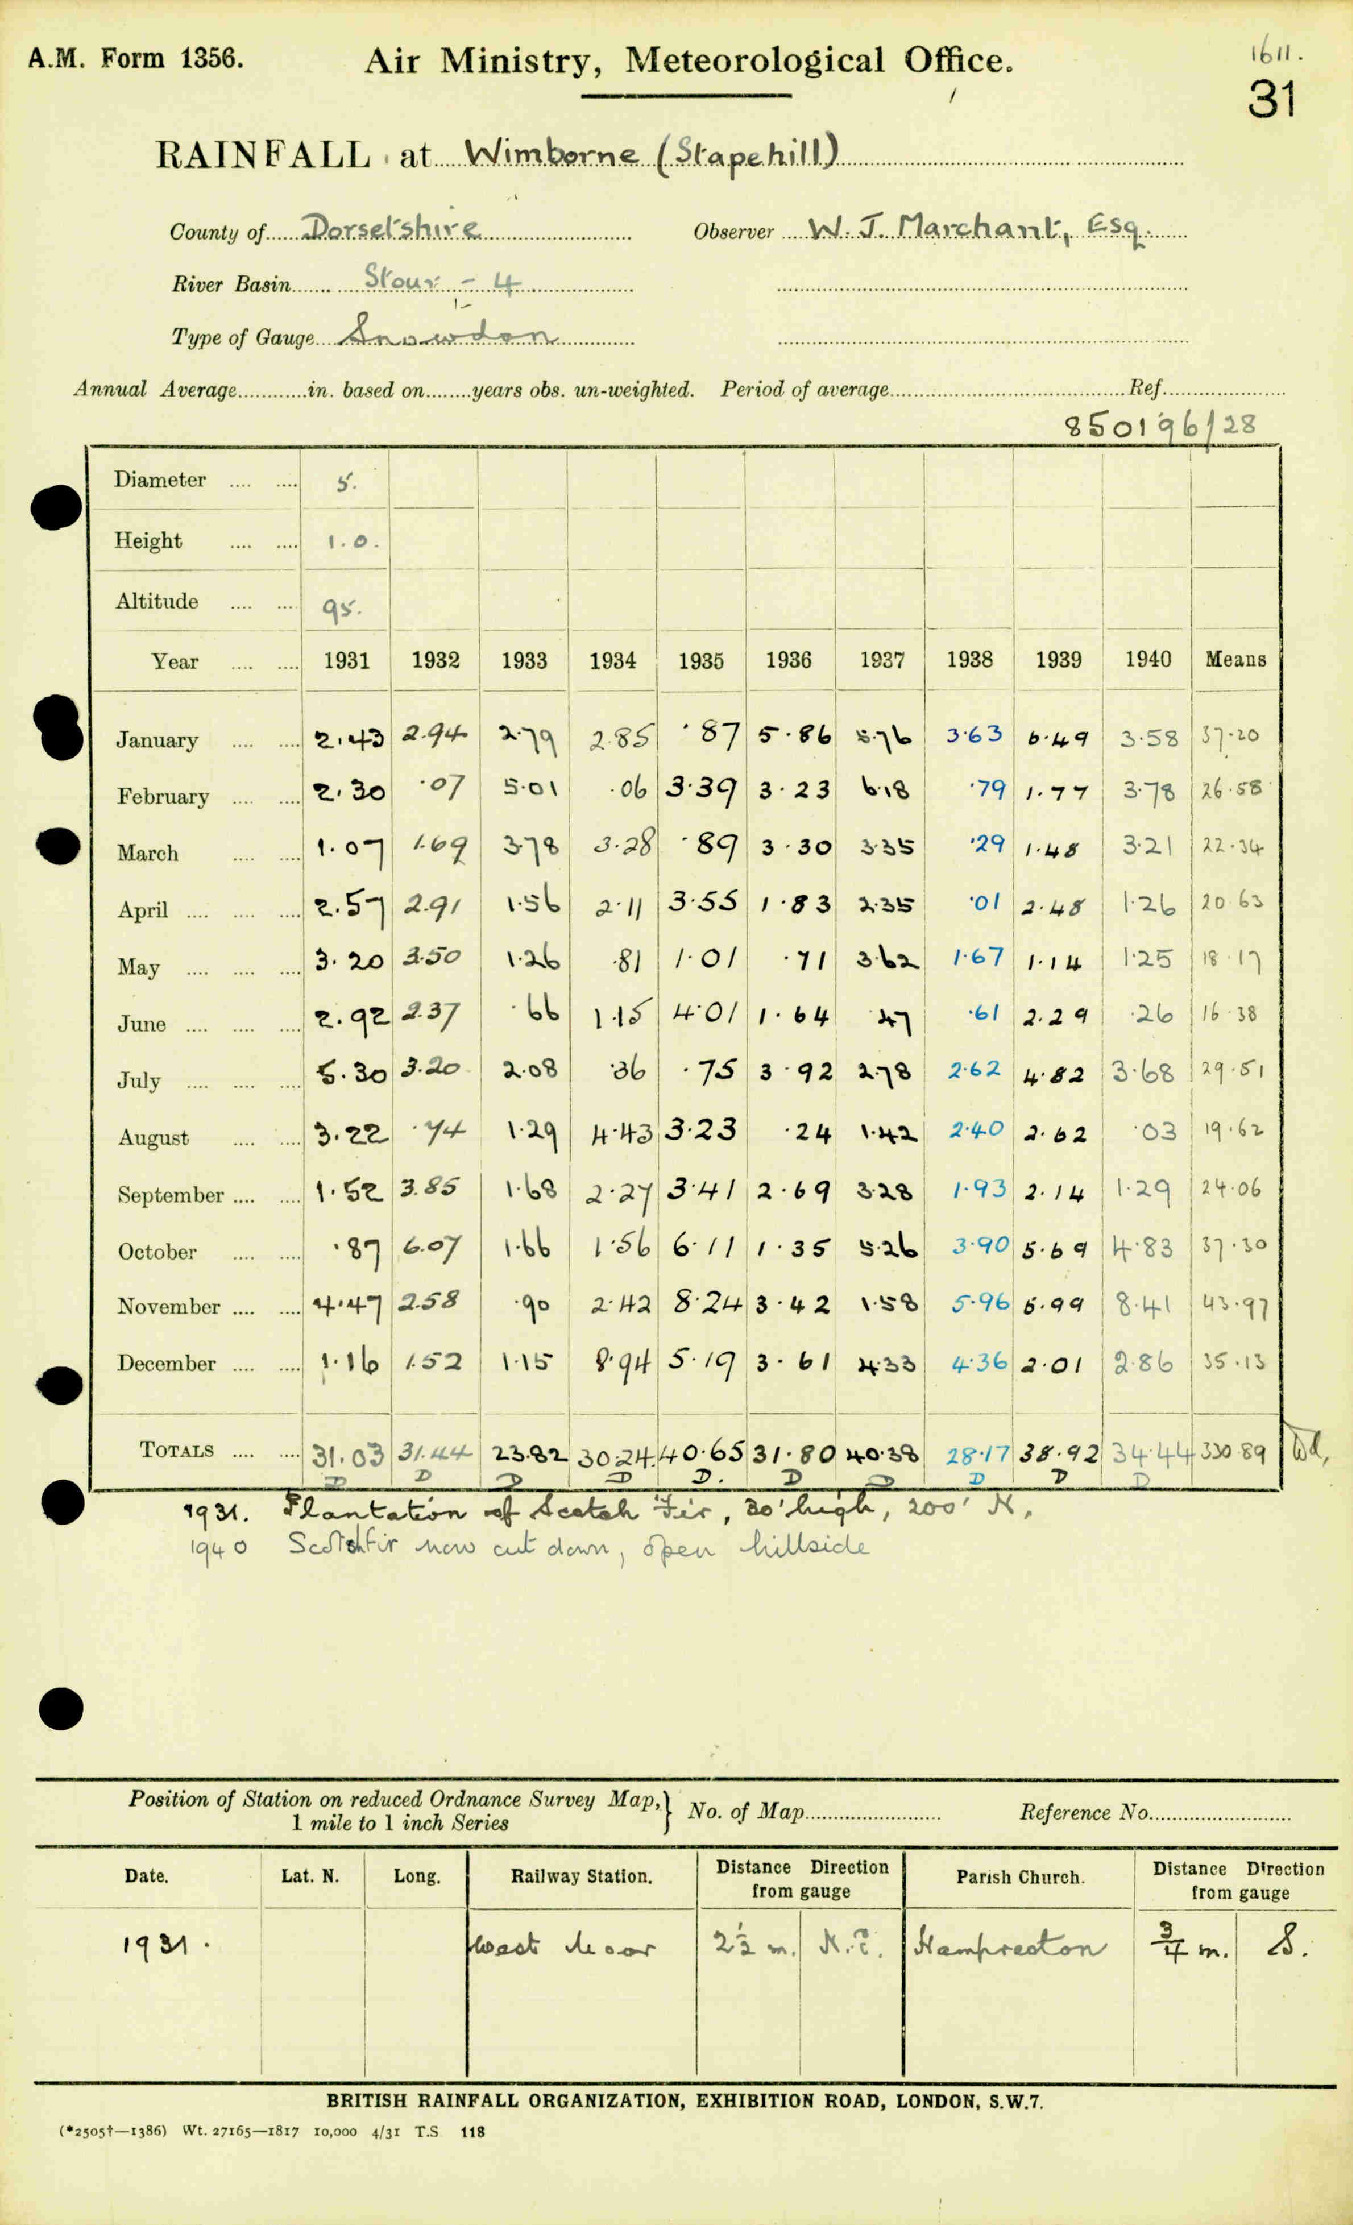 A.M. Form 1356. Air Ministry, Meteorological Office. 1611.
31
RAINFALL at Wimborne (Stapehill)
County of Dorsetshire Observer W. J. Marchant, Esq.
River Basin Stour - 4
Type of Gauge Snowdon
Annual Average in. based on years obs. un-weighted. Period of average Ref.
850196/28
Diameter 5.
Height 1.0.
Altitude 95.
Year 1931 1932 1933 1934 1935 1936 1937 1938 1939 1940 Means
January 2.43 2.94 2.79 2.85 .87 5.86 5.76 3.63 6.49 3.58 37.20
February 2.30 .07 5.01 .06 3.39 3.23 6.18 .79 1.77 3.78 26.58
March 1.07 1.69 3.78 3.28 .89 3.30 3.35 .29 1.48 3.21 22.34
April 2.57 2.91 1.56 2.11 3.55 1.83 2.35 .01 2.48 1.26 20.63
May 3.20 3.50 1.26 .81 1.01 .71 3.62 1.67 1.14 1.25 18.17
June 2.92 2.37 .66 1.15 4.01 1.64 .47 .61 2.29 .26 16.38
July 5.30 3.20 2.08 .36 .75 3.92 2.78 2.62 4.82 3.68 29.51
August 3.22 .74 1.29 4.43 3.23 .24 1.42 2.40 2.62 .03 19.62
September 1.52 3.85 1.68 2.27 3.41 2.69 3.28 1.93 2.14 1.29 24.06
October .87 6.07 1.66 1.56 6.11 1.35 5.26 3.90 5.69 4.83 37.30
November 4.47 2.58 .90 2.42 8.24 3.42 1.58 5.96 5.99 8.41 43.97
December 1.16 1.52 1.15 8.94 5.19 3.61 4.33 4.36 2.01 2.86 35.13
TOTALS 31.03 31.44 23.82 30.24 40.65 31.80 40.38 28.17 38.92 34.44 330.89
D D D D D. D D D D D
1931. Plantation of Scotch Fir, 30' high, 200' N.
1940 Scotchfir now cut down, open hillside
Position of Station on reduced Ordnance Survey Map, 1 mile to 1 inch Series } No. of Map Reference No.
Date. Lat. N. Long. Railway Station. Distance Direction from gauge Parish Church. Distance Direction from gauge
1931. West Moor 2½ m. N.E. Hampreston ¾ m. S.
BRITISH RAINFALL ORGANIZATION, EXHIBITION ROAD, LONDON, S.W.7.
(*2505†—1386) Wt. 27165—1817 10,000 4/31 T.S. 118